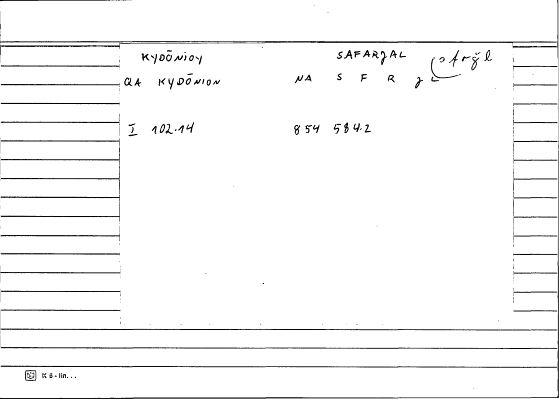 KYDŌNIOY SAFARJAL
QA KYDŌNION NA S F R J sfrǧl
I 102.14 854 584.2
K 6 - lin...